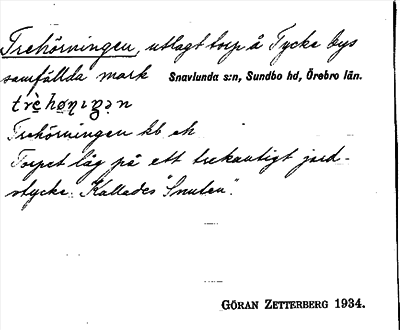 Trehörningen, utlagt torp å Tycke bys
samfällda mark Snavlunda s:n, Sundbo hd, Örebro län.
Trehörningen kb. ek
Torpet låg på ett trekantigt jord-
stycke. Kallades "Snuten".
GÖRAN ZETTERBERG 1934.